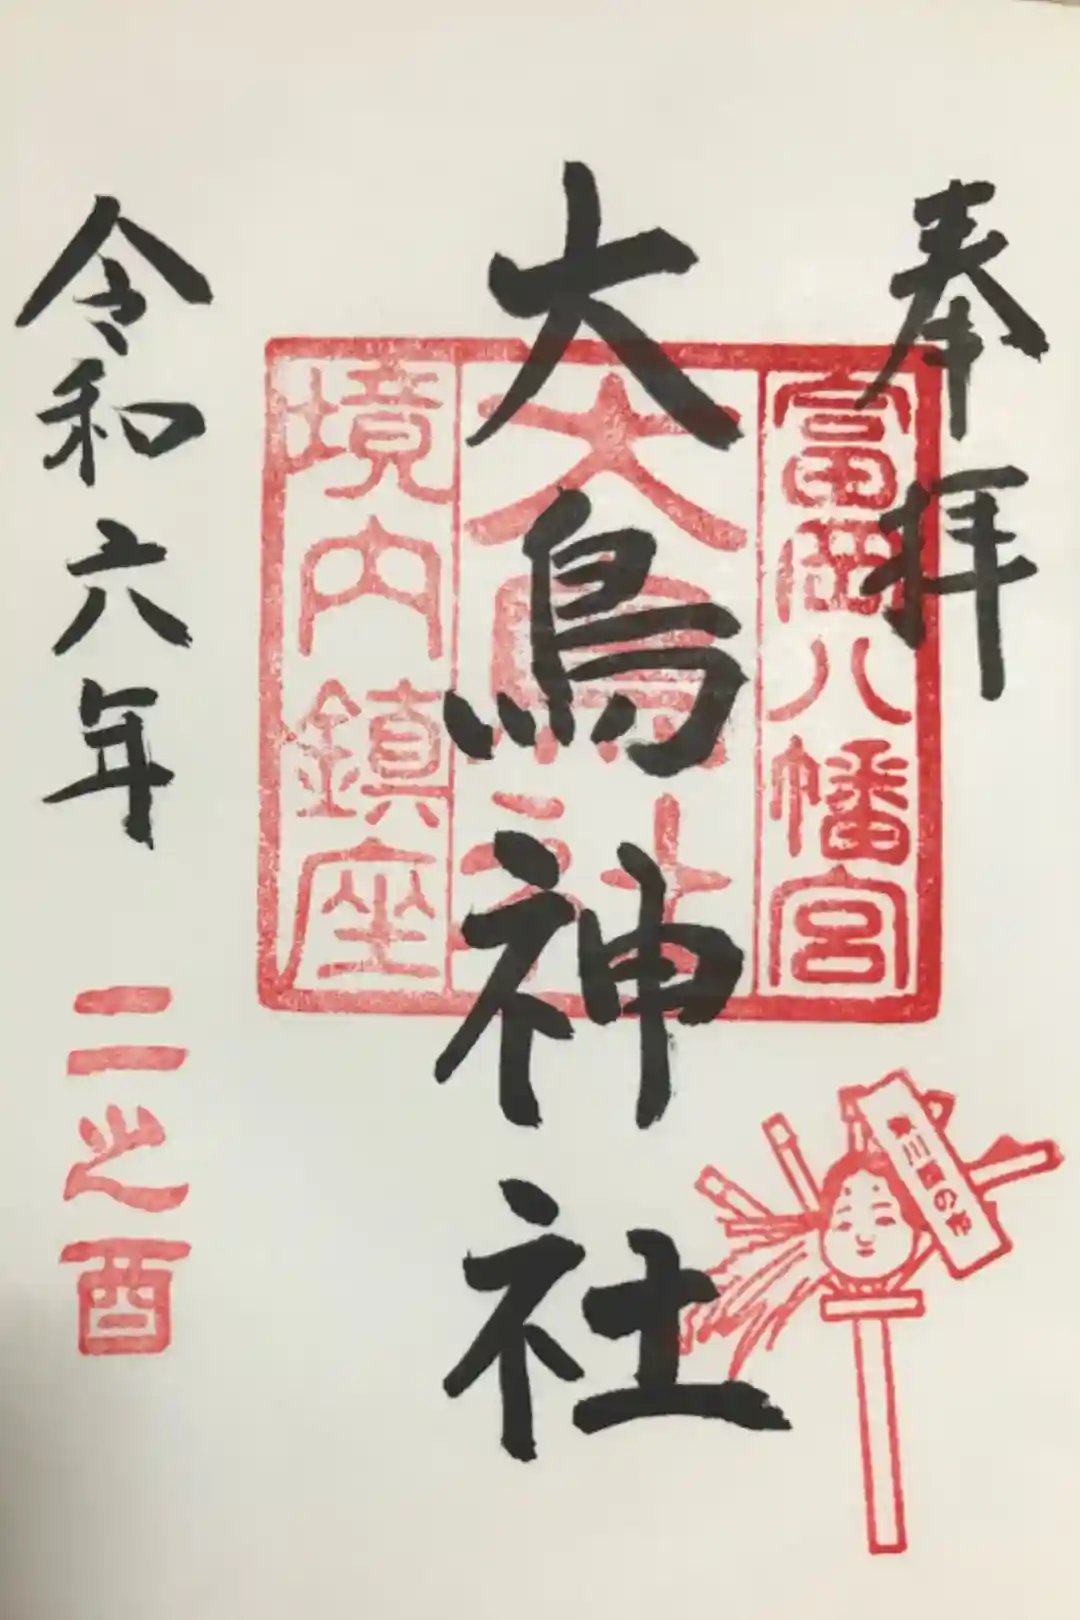 奉拝
富岡八幡宮
大鳥神社
大鳥神社
境内鎮座
令和六年
二之酉